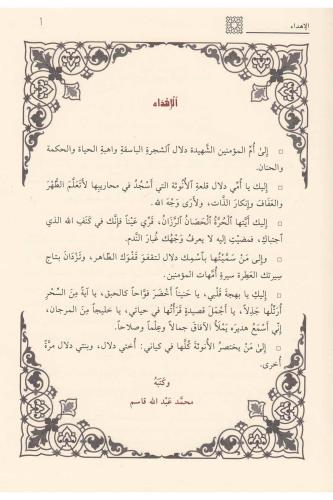 الإهداء
١
الإهداء
▫ إلىٰ أُمِّ المؤمنين الشَّهيدة دلال الشجرةِ الباسقةِ واهبةِ الحياة والحكمة
والحنان.
▫ إليك يا أُمِّي دلال قلعةِ الأُنوثة التي أسْجُدُ في محاريبها لأتعلَّمَ الطُّهْرَ
والعَفافَ وإنكارَ الذَّات، ولأرىٰ وَجْهَ الله.
▫ إليك أيَّتها الحُرَّةُ الحَصَانُ الرَّزَانُ، قَرِّي عَيْناً فإنَّك في كَنَفِ الله الذي
اجتباكِ، فمضَيْتِ إليه لا يعرفُ وَجْهُكِ غُبارَ النَّدم.
▫ وإلى مَن سَمَّيْتُها بٱسْمِك دلال لتقفوَ قَفْوَك الطَّاهر، وتَزْدَانَ بتاج
سِيرتِك العَطِرة سيرةِ أُمَّهات المؤمنين.
▫ إليكِ يا بهجةَ قَلْبي، يا حَنيناً أخْضَرَ فوَّاحاً كالحبق، يا آيةً مِنَ السِّحْرِ
أُرَتِّلُها جَذِلاً، يا أجْمَلَ قصيدةٍ قَرَأْتُها في حياتي، يا خليجاً مِنَ المرجان،
إنِّي أسْمَعُ هديرَه يَمْلأُ الآفاقَ جمالاً وعِلْماً وصلاحاً.
▫ إلى مَنْ يختصِرُ الأُنوثةَ كُلَّها في كياني: أُختي دلال، وبنتي دلال مرَّةً
أُخرى.
وكتبَهُ
محمَّد عَبْد الله قاسم